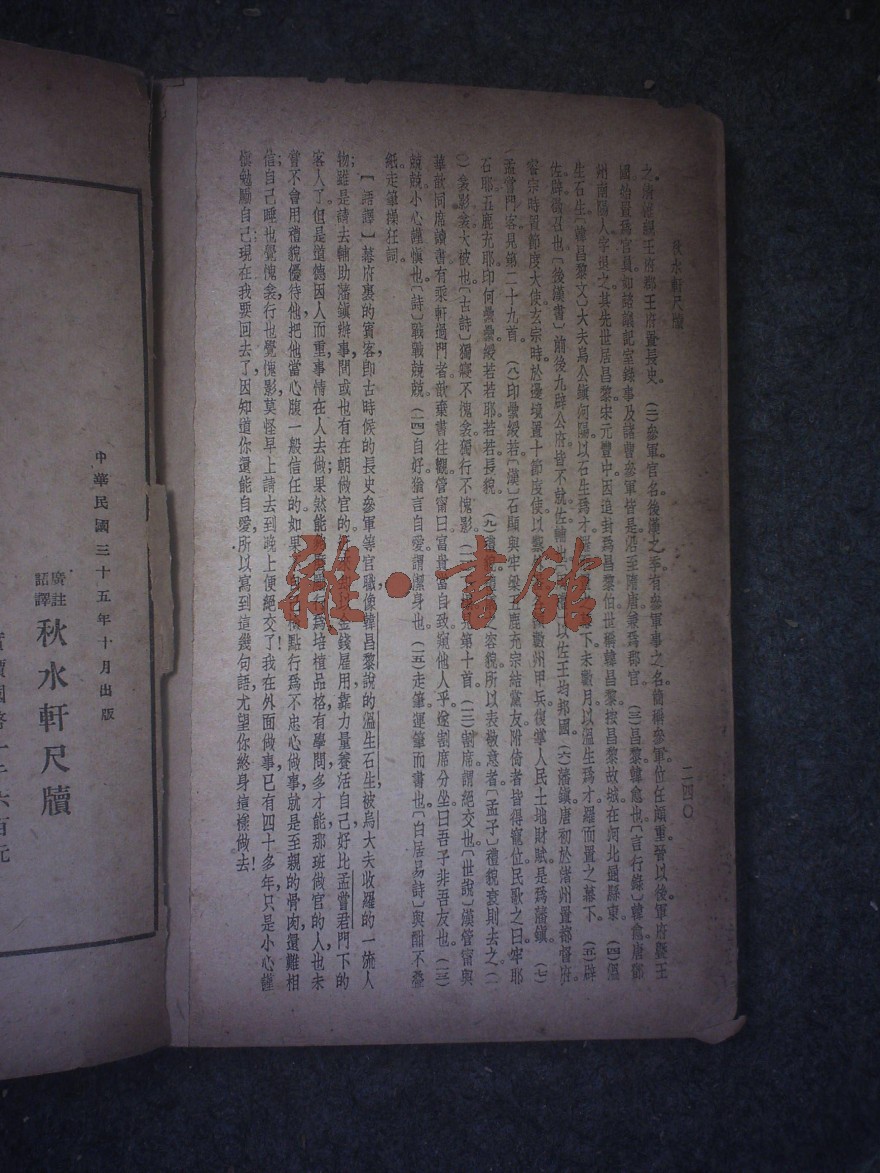 秋水軒尺牘
二四〇
之。唐諸親王府郡王府置長史。(二)參軍官名後漢之季有參軍事之名簡稱參軍位任頗重晉以後軍府曁王
國始置爲官員如諮議記室錄事及諸曹參軍皆是沿至隋唐兼爲郡官。(三)昌黎韓愈也〔言行錄〕韓愈唐鄧
州南陽人字退之其先世居昌黎宋元豐中因追封爲昌黎伯世稱韓昌黎按昌黎故城在河北通縣東。(四)溫
生石生〔韓昌黎文〕大夫烏公鎭河陽以石生爲才
下未數月以溫生爲才羅而置之幕下。(五)辟
佐辟徵召也〔後漢書〕前後九辟公府皆不就佐輔也
以佐王均邦國。(六)藩鎭唐初於諸州置都督府
睿宗時置節度大使玄宗時於邊境置十節度使以
數州甲兵復掌人民土地財賦是爲藩鎭。(七)
孟嘗門客見第二十九首。(八)印纍綬若〔漢〕石顯與牢梁五鹿充宗結黨友附倚者皆得寵位民歌之曰牢耶
石耶五鹿充耶印何纍纍綬若若耶若若長貌。(九)禮貌
之容貌所以表敬意者〔孟子〕禮貌衰則去之(一
〇)衾影衾大被也〔古詩〕獨寢不愧衾獨行不愧影。
第十首。(一二)割席謂絕交也〔世說〕漢管甯與
華歆同席讀書有乘軒過門者歆棄書往觀管甯曰富貴當自致窺他人乎遂割席分坐曰吾子非吾友也。(一三)
兢兢小心謹愼也〔詩〕戰戰兢兢。(一四)自好猶言自愛謂潔身也。(一五)走筆運筆而書也〔白居易詩〕與酣不疊
紙走筆操狂詞。
【語譯】幕府裏的賓客即古時候的長史參軍等官職像韓昌黎說的溫生石生被烏大夫收羅的一流人
物;雖是請去輔助藩鎭辦事,間或也有在朝做官的,
金錢雇用,靠力量養活自己,好比孟嘗君門下的
客人了。但是道德因人而重,事情在人去做;果然能
爲培植品格,有學問多才能,那班做官的人,也未
嘗不會用禮貌優待他,把他當心腹一般信任的。如果
點行爲不忠心做事,就是至親的骨肉,還難相
信;自己睡也覺愧衾,行也覺愧影,莫怪早上請去,到晚上便絕交了!我在外面做事,已有四十多年,只是小心謹
愼,勉勵自己;現在我要回去了,因知道你還能自愛,所以寫到這幾句話,尤望你終身這樣做去!
雜·書館
中華民國三十五年十月出版
廣註
語譯
秋水軒尺牘